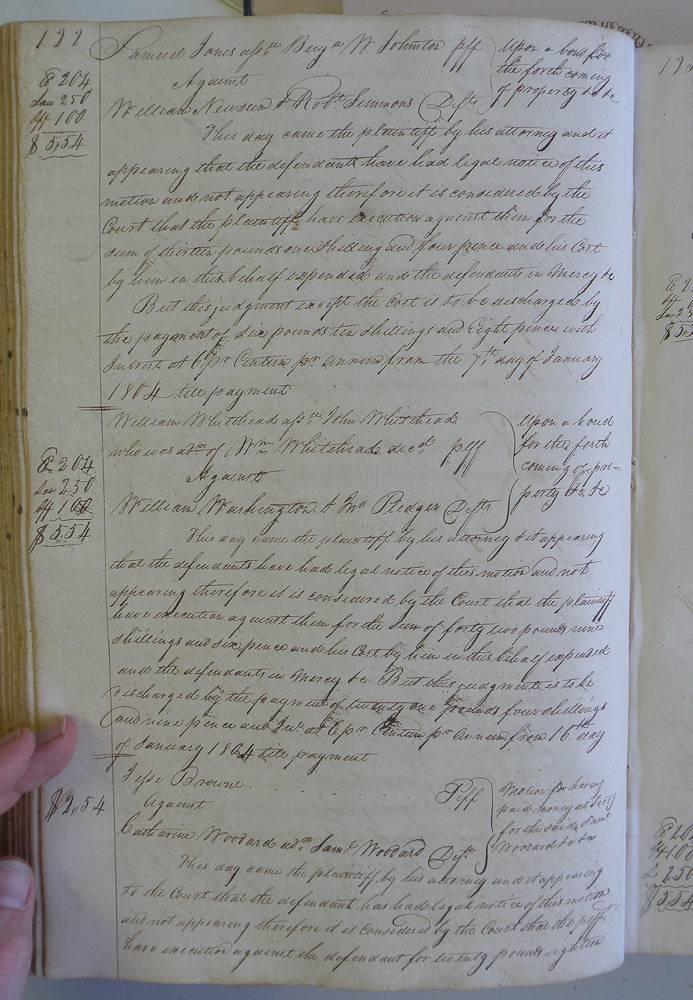 122
Samuel Jones assnee Benja W. Johnston plff
Upon a bond for
the forth coming
of property &c &c
Against
William Newsum & Robt Simmons Defts
Cl 204
Law 250
Sff 100
$ 5,54
This day came the plaintiff by his attorney and it
appearing that the defendants have had legal notice of this
motion and not appearing therefore it is considered by the
Court that the plaintiff have execution against them for the
sum of thirteen pounds one shilling and four pence and his Cost
by him in this behalf expended and the defendants in Mercy &c
But this judgment except the Cost is to be discharged by
the payment of six pounds ten shillings and Eight pence with
Interest at 6 pr Centum pr annum from the 7th day of January
1804 till payment
William Whitehead assnee John Whitehead
who was of Wm Whitehead decd plff
Upon a bond
for the forth
coming of pro-
perty &c &c
Against
William Washington & Jno Pledger Defts
Cl 204
Law 250
Sff 100
$ 5.54
This day came the plaintiff by his attorney & it appearing
that the defendants have had legal notice of this motion and not
appearing therefore it is considered by the Court that the plaintiff
have execution against them for the sum of forty two pounds nine
shillings and six pence and his Cost by him in this behalf expended
and the defendants in Mercy &c. But this judgment is to be
discharged by the payment of twenty one pounds four shillings
and nine pence and Int. at 6 pr Centum pr annum from 16th day
of January 1804 till payment
Jesse Browne . . . . . Plff
Motion for having
paid money as
for the said Saml
Woodard &c &c
Against
Catharine Woodard adx Saml Woodard Deft.
$2,54
This day came the plaintiff by his attorney and it appearing
to the Court that the defendant has had legal notice of this motion
and not appearing therefore it is considered by the Court that the plff
have execution against the defendant for twenty pounds eighteen